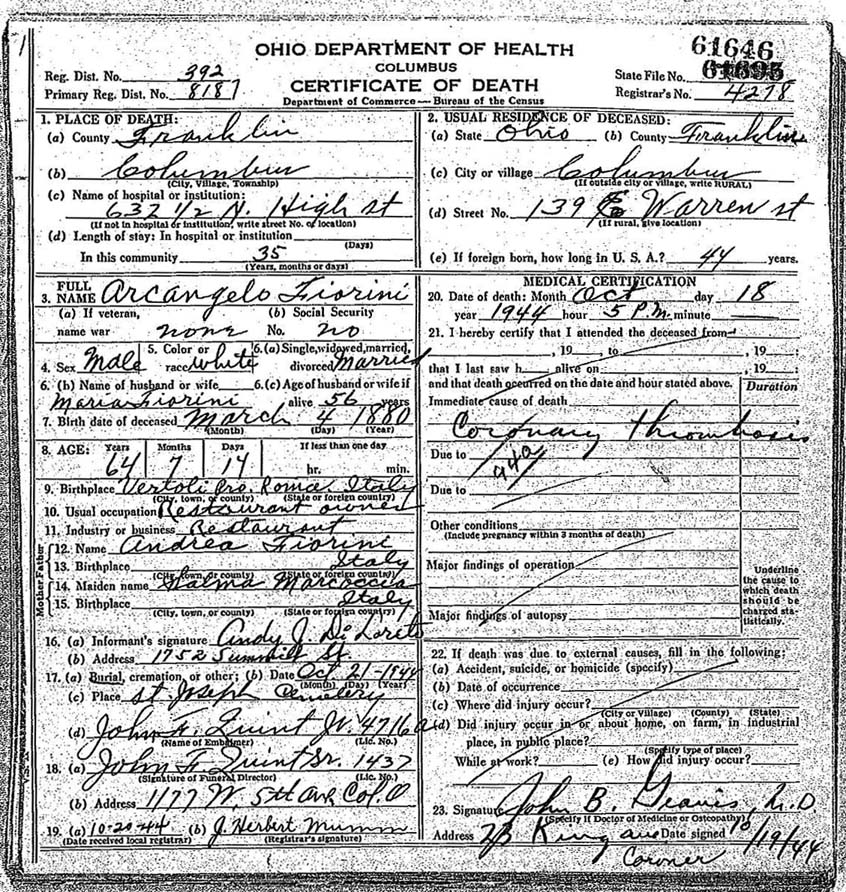 OHIO DEPARTMENT OF HEALTH
COLUMBUS
CERTIFICATE OF DEATH
Department of Commerce — Bureau of the Census
Reg. Dist. No. 392
Primary Reg. Dist. No. 8187
61646
State File No. 61695
Registrar's No. 4278
1. PLACE OF DEATH:
(a) County Franklin
(b) Columbus
(City, Village, Township)
(c) Name of hospital or institution:
632 1/2 N. High st
(If not in hospital or institution, write street No. or location)
(d) Length of stay: In hospital or institution
(Days)
In this community 35
(Years, months or days)
2. USUAL RESIDENCE OF DECEASED:
(a) State Ohio (b) County Franklin
(c) City or village Columbus
(If outside city or village, write RURAL)
(d) Street No. 139 E Warren st
(If rural, give location)
(e) If foreign born, how long in U. S. A.? 44 years.
3. FULL NAME Arcangelo Fiorini
(a) If veteran, name war none
(b) Social Security No. no
4. Sex Male 5. Color or race white 6. (a) Single, widowed, married, divorced Married
6. (b) Name of husband or wife Maria Fiorini 6. (c) Age of husband or wife if alive 56 years
7. Birth date of deceased March 4 1880
(Month) (Day) (Year)
8. AGE: Years 64 Months 7 Days 14 If less than one day hr. min.
9. Birthplace Vertoli Pro. Roma Italy
(City, town, or county) (State or foreign country)
10. Usual occupation Restaurant owner
11. Industry or business Restaurant
Father
12. Name Andrea Fiorini
13. Birthplace Italy
(City, town, or county) (State or foreign country)
Mother
14. Maiden name Marcoccia
15. Birthplace Italy
(City, town, or county) (State or foreign country)
16. (a) Informant's signature Andy J. Di Loreto
(b) Address 1752 Summit St.
17. (a) Burial, cremation, or other; (b) Date Oct 21-1944
(Month) (Day) (Year)
(c) Place St. Joseph Cemetery
(d) John F. Quint Jr. 4716a
(Name of Embalmer) (Lic. No.)
18. (a) John F Quint Sr. 1437
(Signature of Funeral Director) (Lic. No.)
(b) Address 1177 W. 5th Ave Col. O
19. (a) 10-20-44 (b) J. Herbert Mumm
(Date received local registrar) (Registrar's signature)
MEDICAL CERTIFICATION
20. Date of death: Month Oct day 18
year 1944 hour 5 P.M. minute
21. I hereby certify that I attended the deceased from
, 19 to , 19 ;
that I last saw h alive on , 19 ;
and that death occurred on the date and hour stated above.
Duration
Immediate cause of death
Coronary Thrombosis
Due to 94a
Due to
Other conditions
(Include pregnancy within 3 months of death)
Major findings of operation
Major findings of autopsy
Underline the cause to which death should be charged statistically.
22. If death was due to external causes, fill in the following:
(a) Accident, suicide, or homicide (specify)
(b) Date of occurrence
(c) Where did injury occur?
(City or Village) (County) (State)
(d) Did injury occur in or about home, on farm, in industrial place, in public place?
(Specify type of place)
While at work? (e) How did injury occur?
23. Signature John B. M.D
(Specify if Doctor of Medicine or Osteopathy)
Address King ave Date signed 10/19/44
Coroner